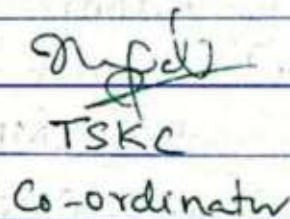 TSKC
Co-ordinator